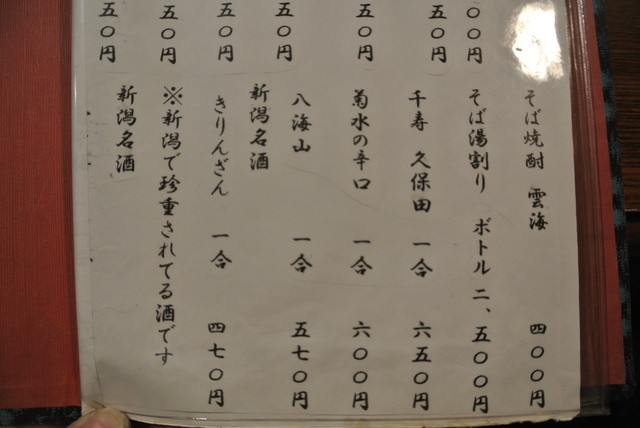 〇〇円
五〇円
五〇円
五〇円
五〇円
五〇円
五〇円
そば焼酎 雲海 四〇〇円
そば湯割り ボトル 二、五〇〇円
千寿 久保田 一合 六五〇円
菊水の辛口 一合 六〇〇円
八海山 一合 五七〇円
新潟名酒
きりんざん 一合 四七〇円
※新潟で珍重されてる酒です
新潟名酒